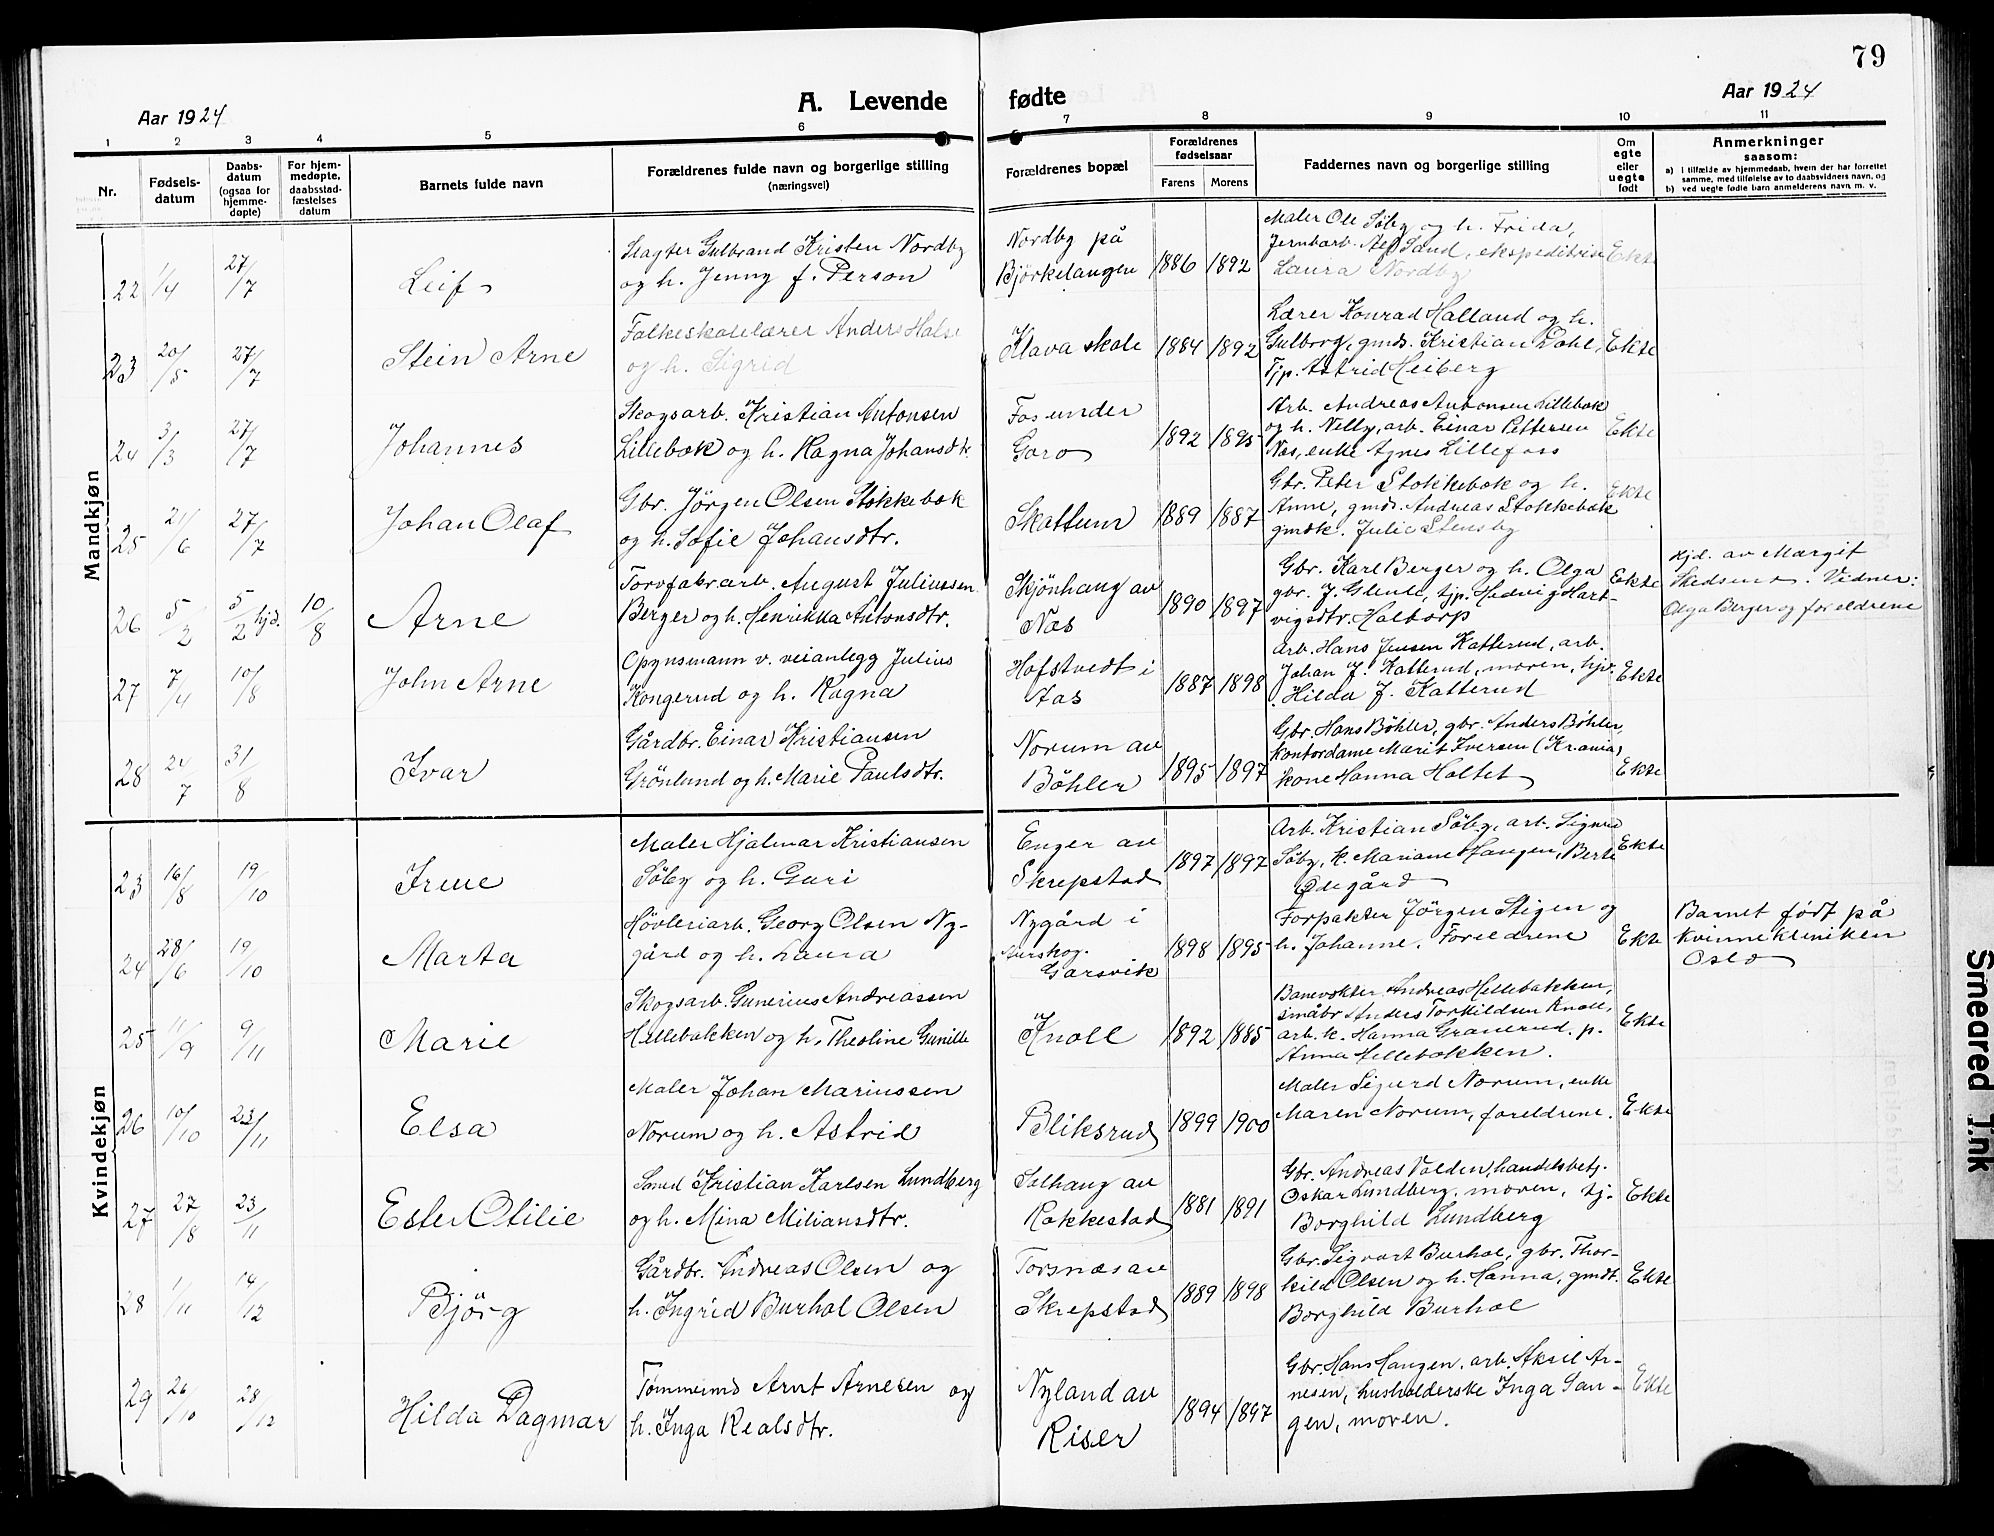 79
Aar 1924
A. Levende fødte
Aar 1924
1 2 3 4 5 6 7 8 9 10 11
Nr.
Fødsels-
datum
Daabs-
datum
(ogsaa for
hjemme-
døpte)
For hjem-
medøpte,
daabsstad-
fæstelses
datum
Barnets fulde navn
Forældrenes fulde navn og borgerlige stilling
(næringsvei)
Forældrenes bopæl
Forældrenes
fødselsaar
Farens Morens
Faddernes navn og borgerlige stilling
Om
egte
eller
uegte
født
Anmerkninger
saasom:
a) i tilfælde av hjemmedaab, hvem der har forrettet
samme, med tilføielse av to daabsvidners navn, og
b) ved uegte fødte barn anmelderens navn m. v.
Mandkjøn
22 1/4 27/7 Leif
Slagter Gulbrand Kristen Nordby
og h. Jenny f. Person
Nordby på
Björkelangen
1886 1892
Maler Ole Söby og h. Frida,
Jernbarb. Alf Sand, ekspeditrise
Laura Nordby
Ekte
23 20/5 27/7 Stein Arne
Folkeskolelærer Anders Halse
og h. Sigrid
Klava skole
1884 1892
Lærer Konrad Halland og h.
Gulborg, gmds. Kristian Dahl,
Tjp. Astrid Heiberg
Ekte
24 3/3 27/7 Johannes
Skogsarb. Kristian Antonsen
Lillebæk og h. Ragna Johansdtr.
Fos under
Garo
1892 1895
Arb. Andreas Antonsen Lillebæk
og h. Nelly, arb. Einar Pettersen
Næs, enke Agnes Lillefoss
Ekte
25 21/6 27/7 Johan Olaf
Gbr. Jörgen Olsen Stokkebæk
og h. Sofie Johansdtr.
Skattum
1889 1887
Gbr. Peter Stokkebæk og h.
Anne, gmds. Andreas Stokkebæk
gmdk. Julie Stensby
Ekte
26 5/2 5/2 hjd. 10/8 Arne
Torvfabr.arb. August Juliussen
Berger og h. Henrikka Antonsdtr.
Skjönhaug av
Næs
1890 1897
Gbr. Karl Berger og h. Olga
gbr. J. Glente, tjp. Hedvig Hart-
vigsdtr. Haltorp
Ekte
Hjd. av Margit
Skedsmo. Vidner:
Olga Berger og foreldrene
27 7/4 10/8 John Arne
Opsynsmann v. veianlegg Julius
Kongerud og h. Ragna
Hofstvedt i
Aas
1887 1898
Arb. Hans Jensen Katterud, arb.
Johan J. Katterud, moren, hjv.
Hilda J. Katterud
Ekte
28 21/7 31/8 Ivar
Gårdbr. Einar Kristiansen
Grönlund og h. Marie Paulsdtr.
Norum av
Böhler
1895 1897
Gbr. Hans Böhler, gbr. Anders Böhler,
kontordame Marit Iversen (Krania)
kone Hanna Holtet
Ekte
Kvindekjøn
23 16/8 19/10 Irene
Maler Hjalmar Kristiansen
Söby og h. Guri
Enger av
Skrepstad
1897 1897
Arb. Kristian Söby, arb. Sigurd
Söby, k. Mariane Haugen, Berte
Ødegård
Ekte
24 28/6 19/10 Marta
Hövleriarb. Georg Olsen Ny-
gård og h. Laura
Nygård i
Aurskog.
Garsvik
1898 1895
Forpakter Jörgen Stigen og
h. Johanne. Foreldrene
Ekte
Barnet födt på
Kvinnekliniken
Oslo
25 11/9 9/11 Marie
Skogsarb. Gunerius Andreassen
Hellebækken og h. Theoline Gunille
Knoll
1892 1885
Banevokter Andreas Hellebækken,
småbr. Anders Torkildsen Knoll,
arb. k. Hanna Granerud. p.
Anna Hellebækken.
Ekte
26 10/10 23/11 Elsa
Maler Johan Mariussen
Norum og h. Astrid
Bliksrud
1899 1900
Maler Sigurd Norum, enke
Maren Norum, foreldrene.
Ekte
27 27/8 23/11 Ester Otilie
Smed Kristian Karlsen Lundberg
og h. Mina Miliansdtr.
Solhaug av
Rakkestad
1881 1891
Gbr. Andreas Volden, handelsbetj.
Oskar Lundberg, moren, tj.
Borghild Lundberg
Ekte
28 1/11 14/12 Björg
Gårdbr. Andreas Olsen og
h. Ingrid Burhol Olsen
Torsnæs av
Skrepstad
1889 1898
Gbr. Sigvart Burhol, gbr. Thor-
kild Olsen og h. Hanna, gmdt.
Borghild Burhol
Ekte
29 26/10 28/12 Hilda Dagmar
Tömmermd Arnt Arnesen og
h. Inga Realsdtr.
Nyland av
Riser
1894 1897
Gbr. Hans Haugen, arb. Aksil Ar-
nesen, husholderske Inga San-
gen, moren.
Ekte
Smeared Ink